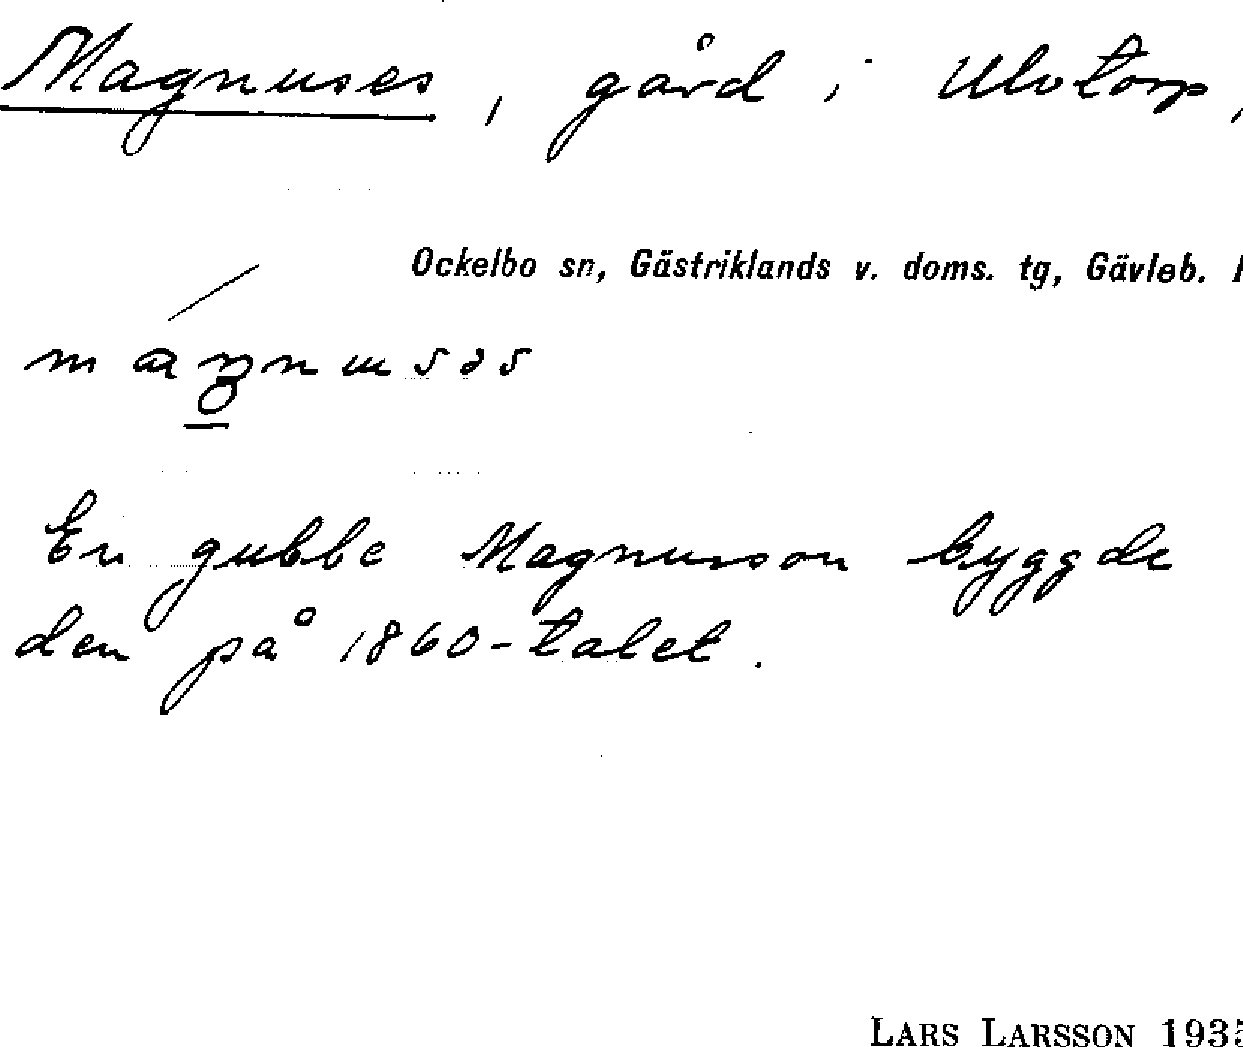 Magnuses, gård i Ulvtorp,
Ockelbo sn, Gästriklands v. doms. tg, Gävleb.
En gubbe Magnusson byggde
den på 1860-talet.
LARS LARSSON